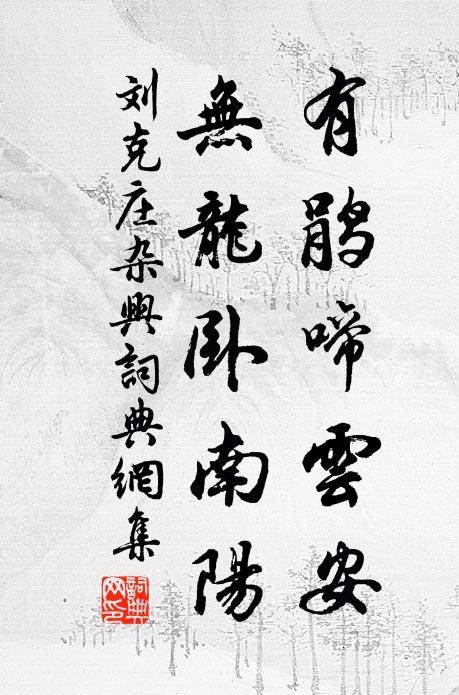 有鹃啼雲安
無龍卧南陽
刘克庄杂興詞典網集
詞典網印